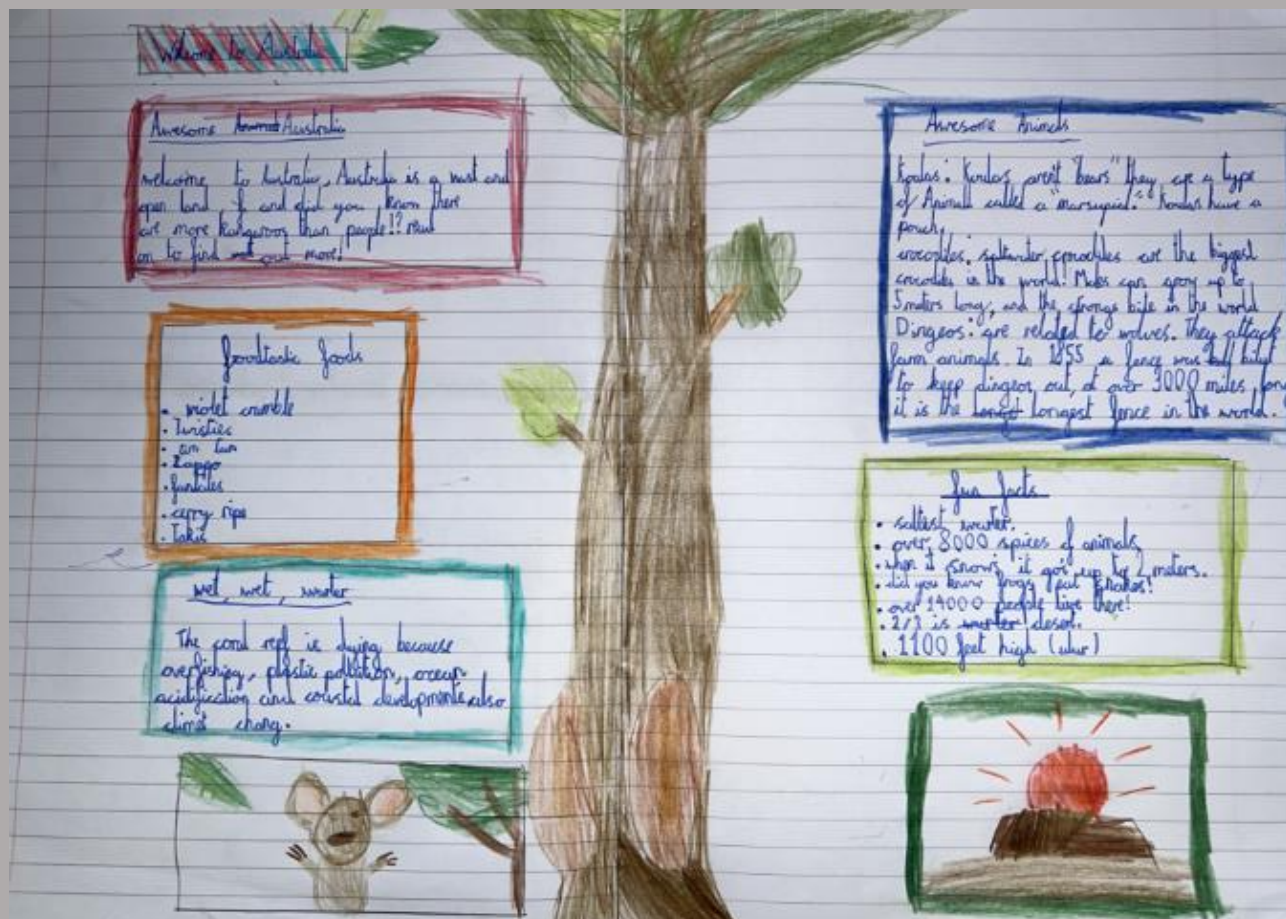 Welcome to Australia
Awesome Animals Australia
welcome to Australia, Australia is a vast and
open land f and did you know there
are more kangaroos than people!? read
on to find out more!
foodtastic foods
• violet crumble
• Twisties
• tim tam
• Zappo
• fantales
• cerry rips
• Takis
wet, wet, water
The coral reef is dying because
overfishing, plastic pollution, ocean
acidification and coastal developments also
climet chang.
Awesome Animals
Koalas: Koalas aren't "bears" they are a type
of Animal called a "marsupial." Koalas have a
pouch.
crocodiles: saltwater crocodiles are the biggest
crocodiles in the world! Males can grow up to
5 meters long, and the strongs bite in the world
Dingeos: are related to wolves. They attack
farm animals. In 1855 a fence was built
to keep dingeos out, at over 3000 miles long
it is the longest longest fence in the world.
fun facts
• saltest water.
• over 8000 spices of animals,
• when it snows it gos up to 2 meters.
• did you know frogs eat snakes!
• over 14000 people live there!
• 2/3 is water desert.
• 1100 feet high (ulur)